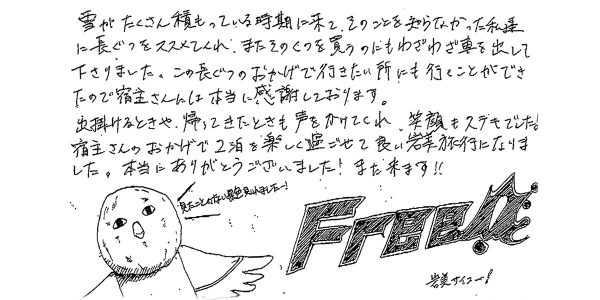 雪がたくさん積もっている時期に来て、そのことを知らなかった私達
に長ぐつをススメてくれ、またそのくつを買うのにもわざわざ車を出して
下さりました。この長ぐつのおかげで行きたい所にも行くことができ
たので宿主さんには本当に感謝しております。
出掛けるときや、帰ってきたときも声をかけてくれ、笑顔もステキでした!
宿主さんのおかげで2泊を楽しく過ごせて良い岩美旅行になりまし
た。本当にありがとうございました!また来ます!!
見たことのない景色見れましたー!
Free!
岩美サイコー!